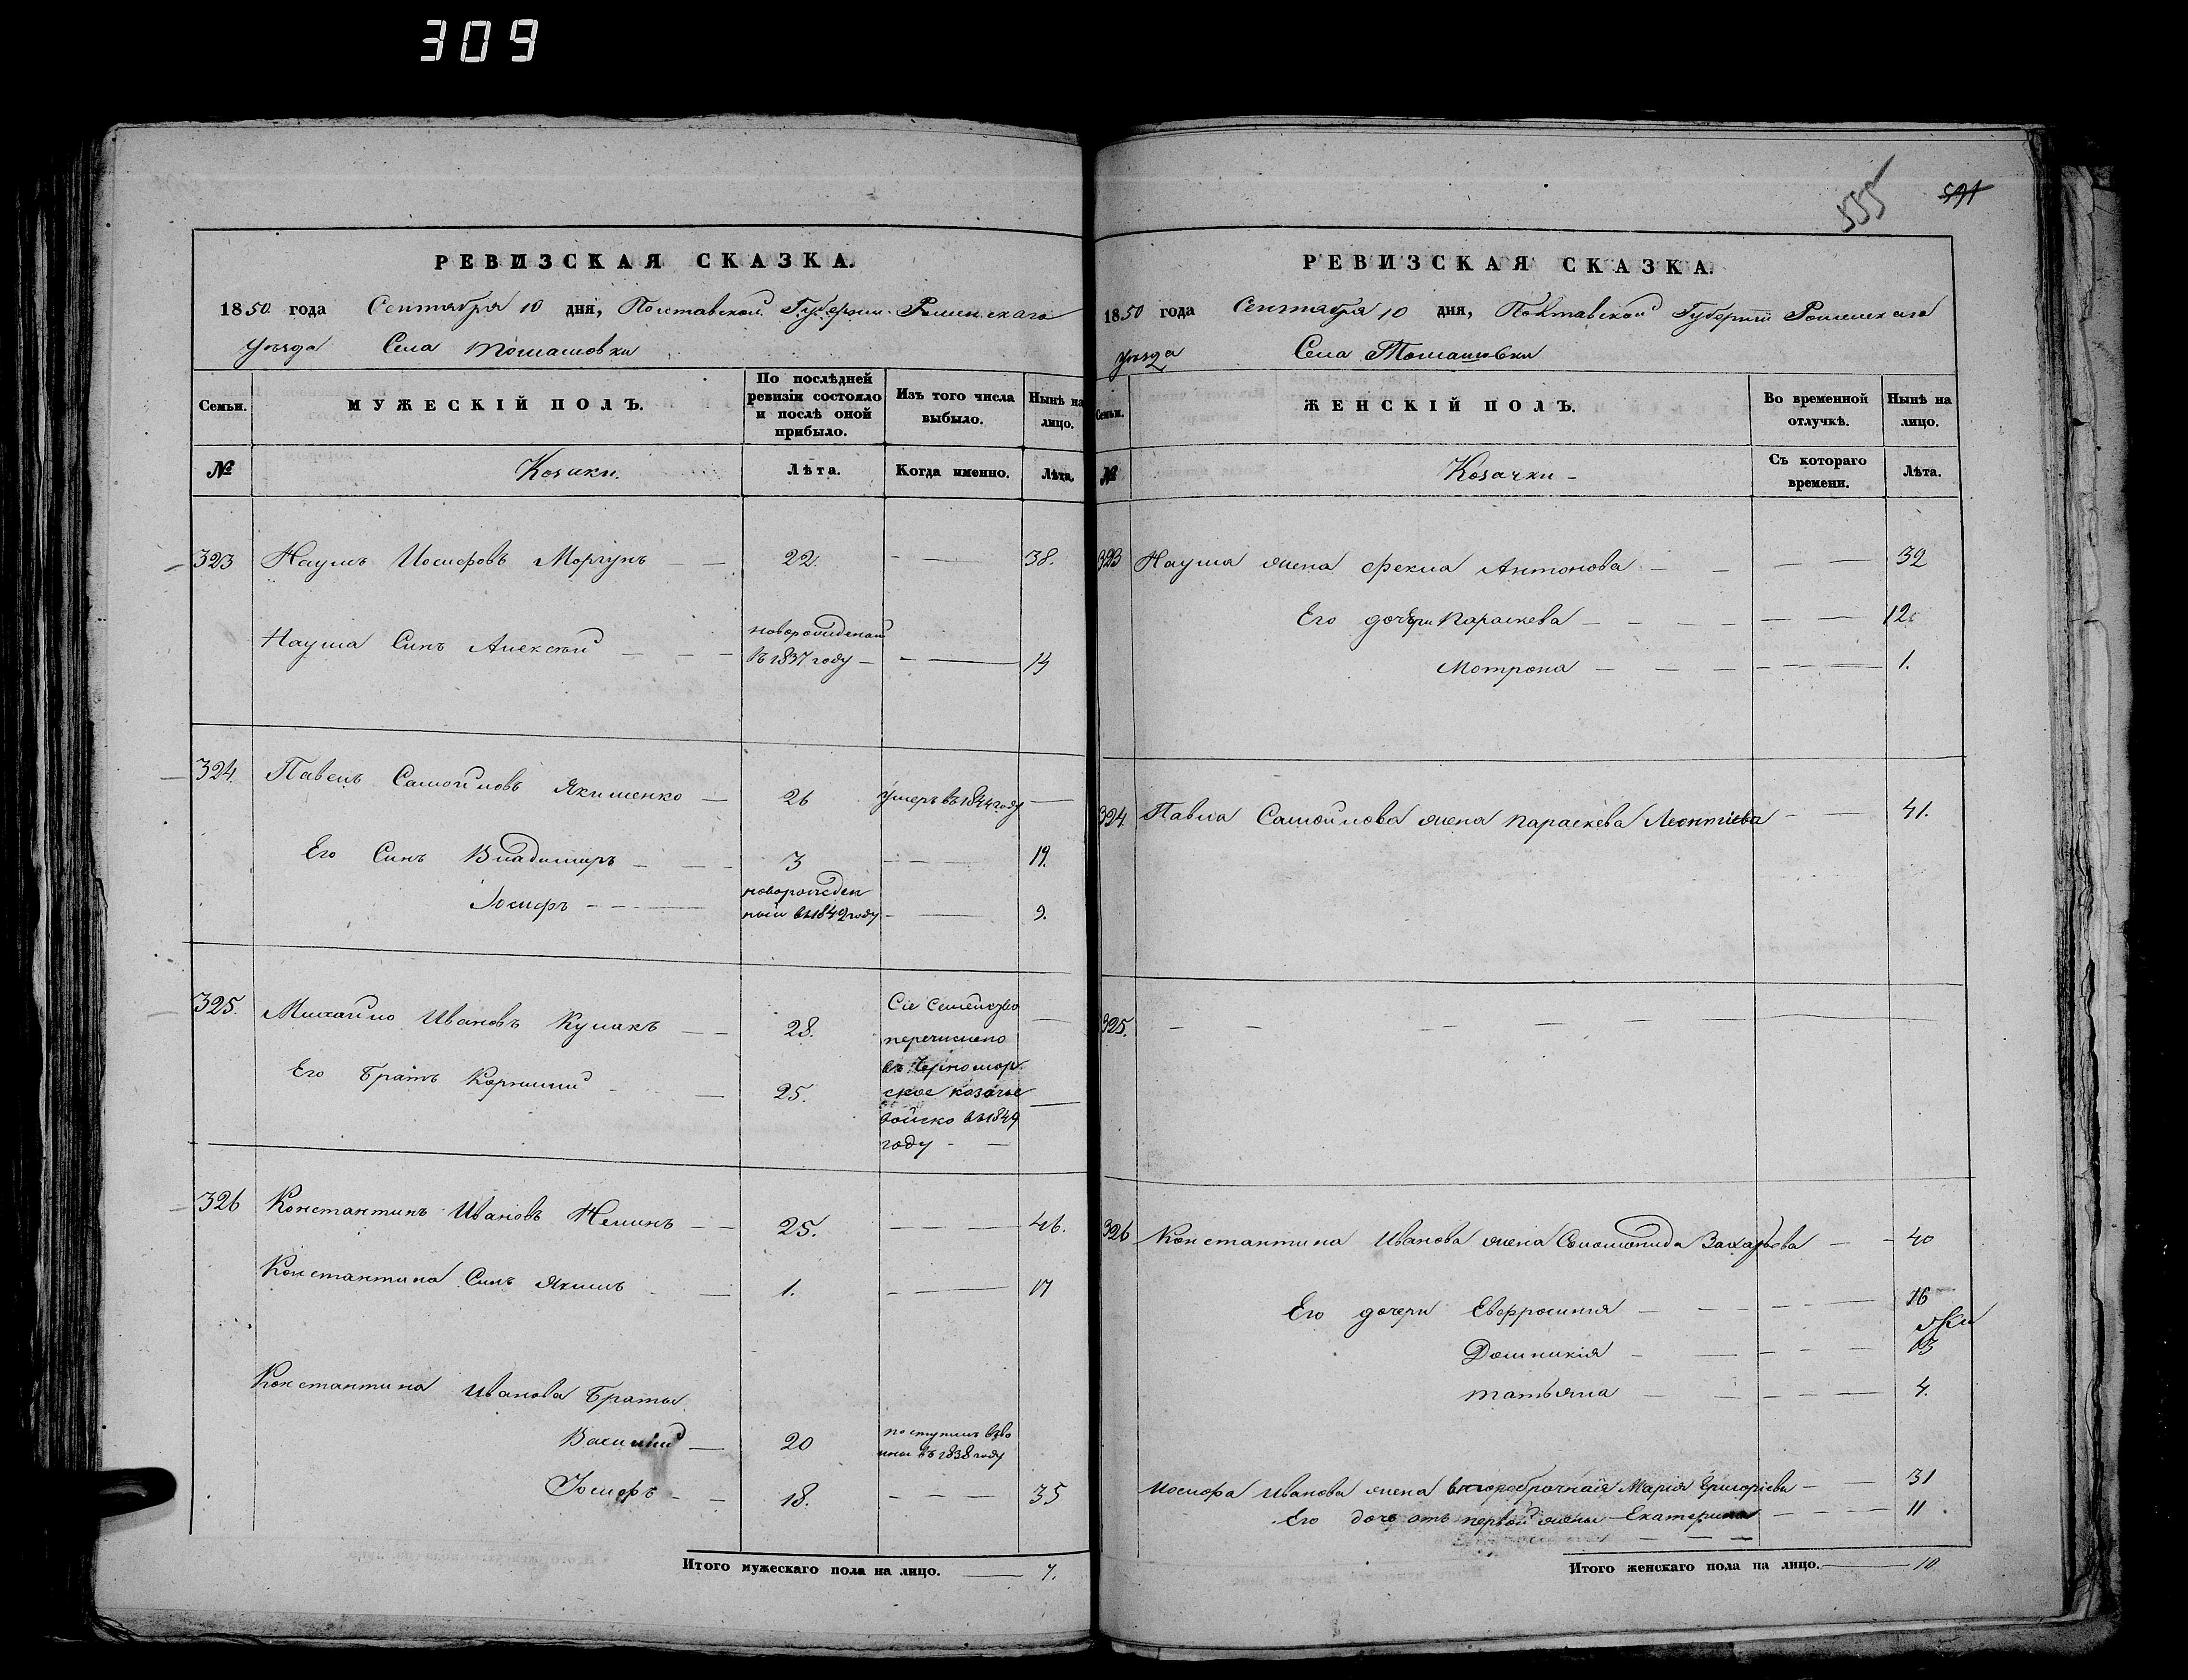 309
555
591
РЕВИЗСКАЯ СКАЗКА.
1850 года Сентября 10 дня, Полтавской Губернии Роменскаго
уѣзда Села Томашовки
Семьи. МУЖЕСКІЙ ПОЛЪ. По послѣдней ревизіи состояло и послѣ оной прибыло. Изъ того числа выбыло. Нынѣ на лицо.
№ Козаки. Лѣта. Когда именно. Лѣта.
323 Наумъ Иосифовъ Моргунъ 22. 38.
Наума Синъ Алексѣй новорожденный
въ 1837 году 13
324. Павелъ Самойловъ Якименко 26 умеръ въ 1844 году
Его Синъ Владимиръ 3 19.
новорожден
Іосифъ ный въ 1842 году 9.
325. Михайло Ивановъ Кулакъ 28. Сіе Семейство
перечислено
Его Братъ Корнилий 25. въ Черномор
ское козачье
войско въ 1849
году
326 Константинъ Ивановъ Нелинъ 25. 46.
Константина Синъ Якимъ 1. 17
Константина Иванова Браты
Василий 20 поступилъ въ во
ины въ 1838 году
Іосифъ 18. 35
Итого мужескаго пола на лицо. 7.
РЕВИЗСКАЯ СКАЗКА.
1850 года Сентября 10 дня, Полтавской Губерніи Роменскаго
уѣзда Села Томашовки
Семьи. ЖЕНСКІЙ ПОЛЪ. Во временной отлучкѣ. Нынѣ на лицо.
№ Козачки Съ котораго времени. Лѣта.
323 Наума жена Фекла Антонова 32
Его дочери Параскева 12
Мотрона 1.
324 Павла Самойлова жена Параскева Леонтіева 41.
325.
326 Константина Иванова жена Соломонида Захарьева 40
Его дочери Евфросинія 16
Домникія 13
Татьяна 4.
Иосифа Иванова жена второбрачная Марія Григоріева 31
Его дочь отъ первой жены Екатерина 11
Итого женскаго пола на лицо. 10